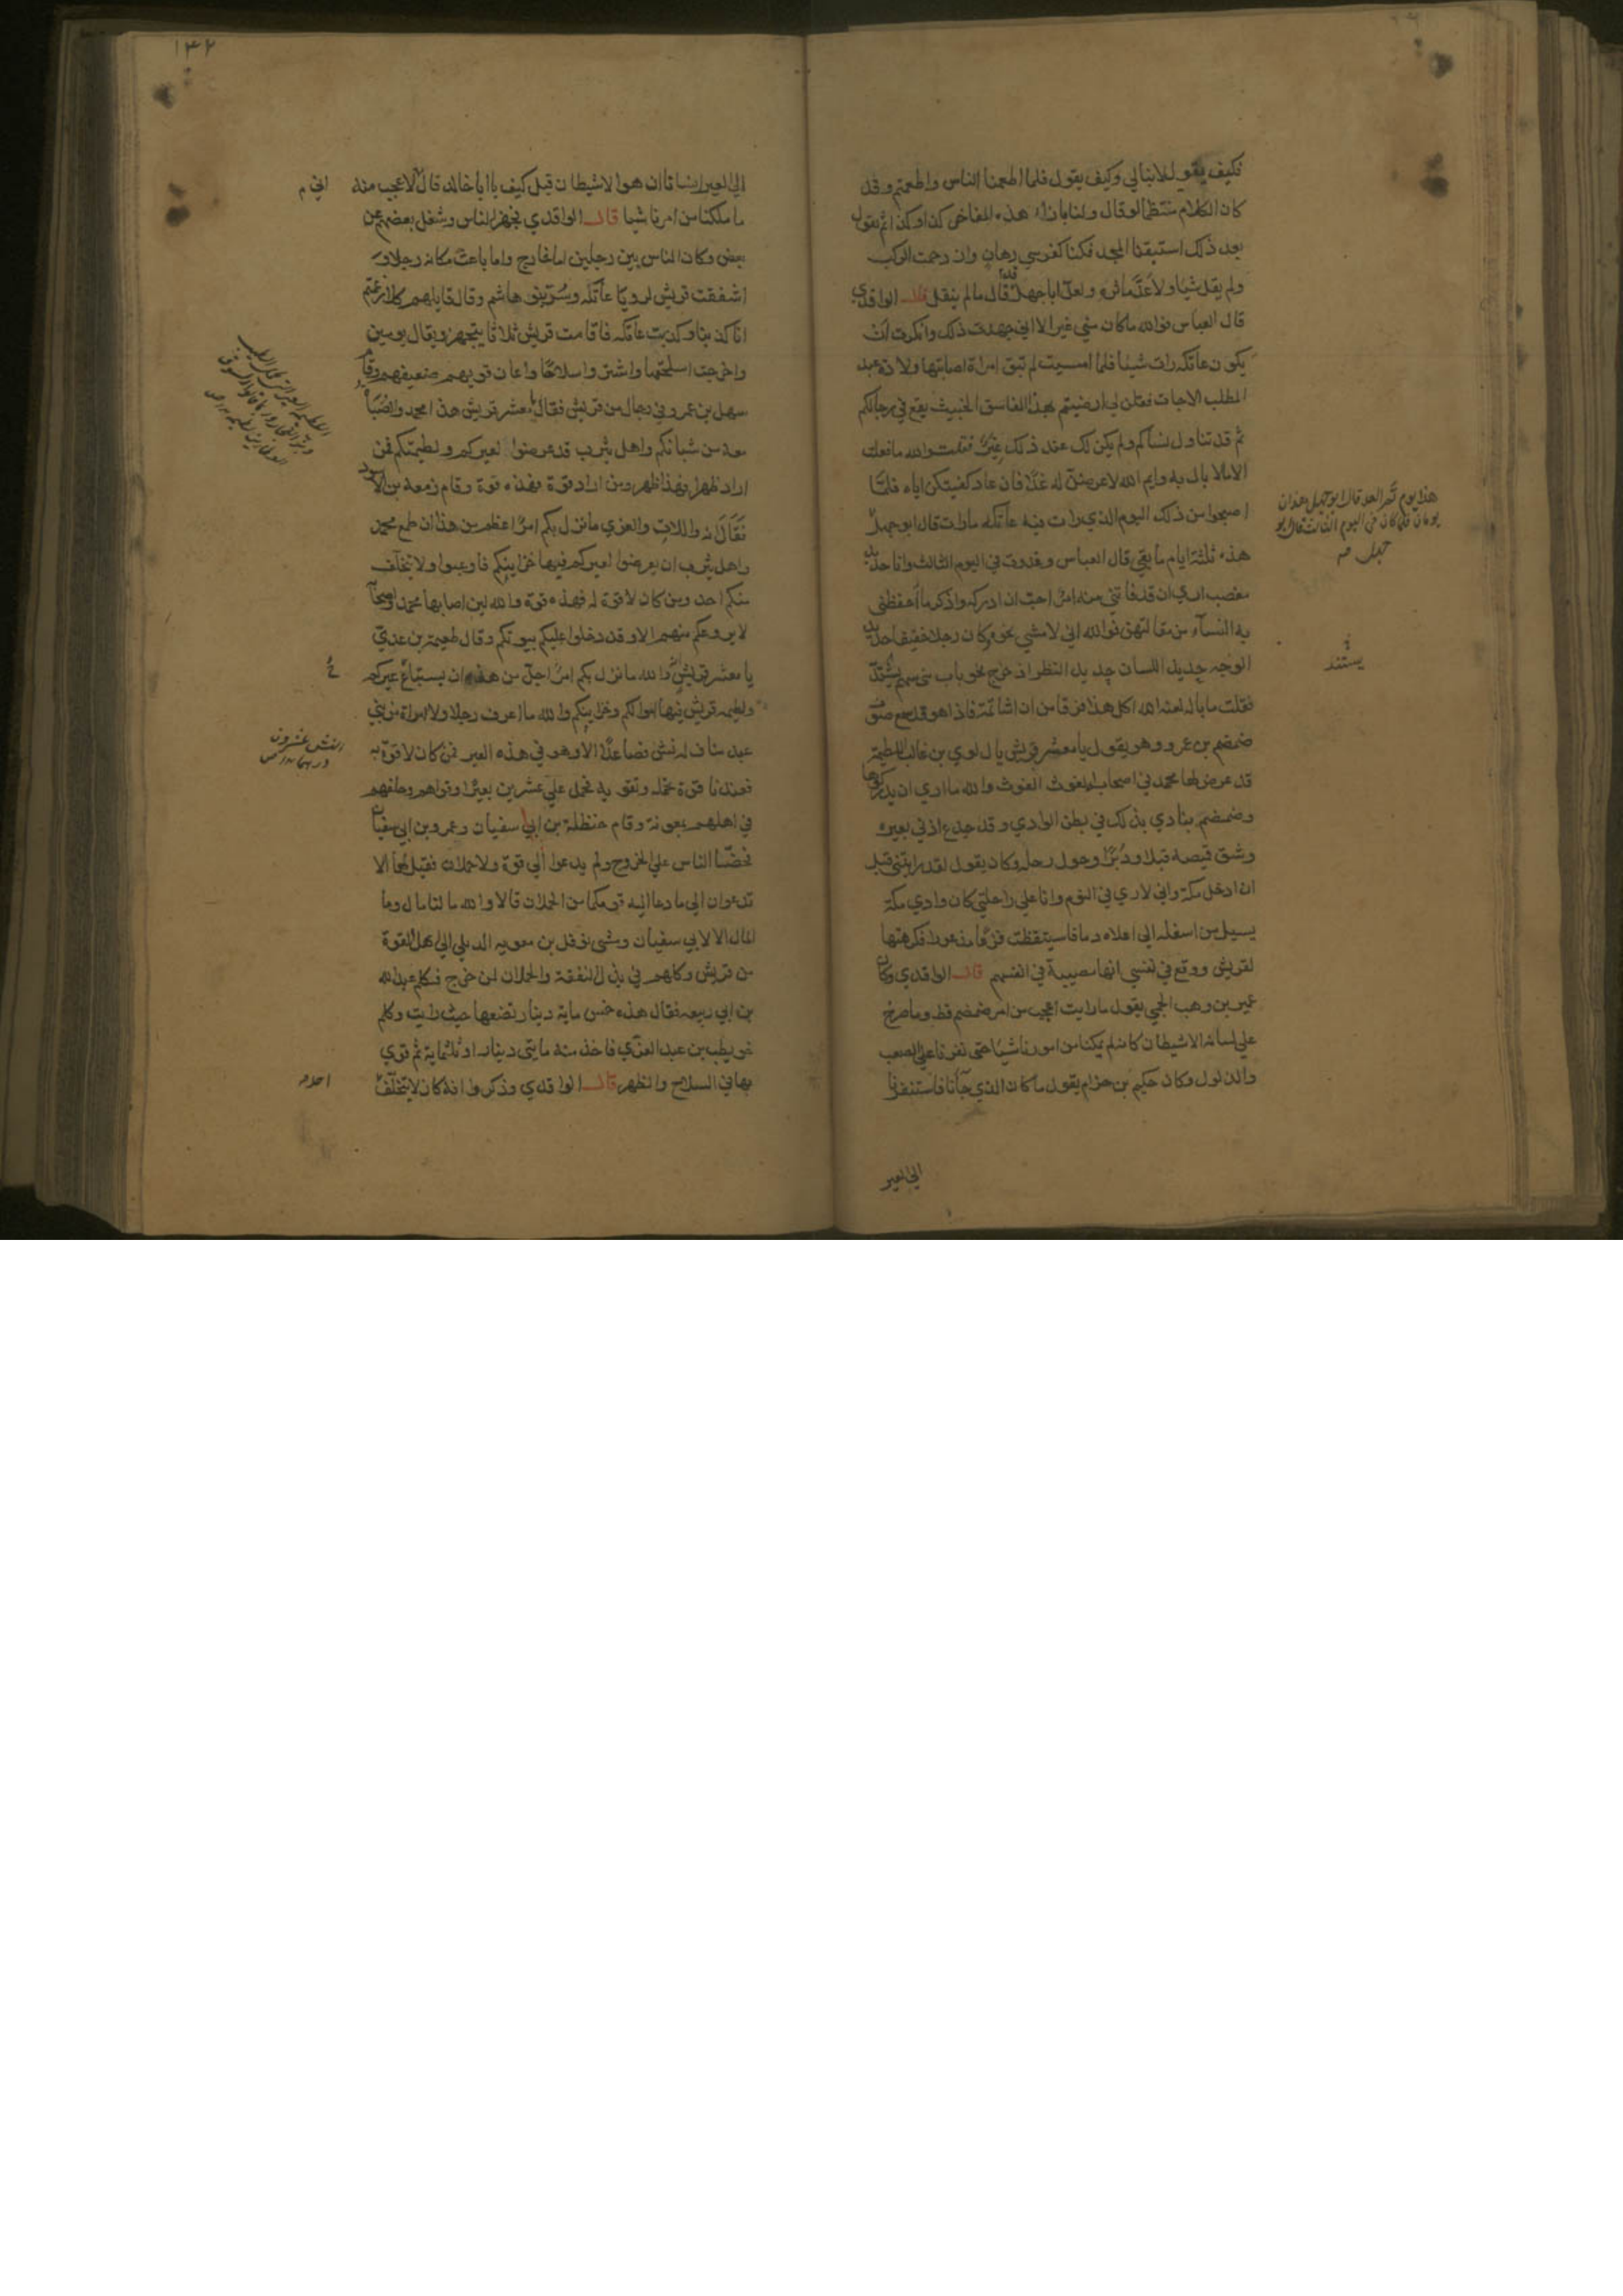 فكيف يقول للابنا لي وكيف يقول فلما اطعمنا الناس واطعمتم وقد
كان الكلام منتظما لو قال ولنا بازاء هذه المفاخر كذا وكذا ثم يقول
بعد ذلك استبقنا المجد فكنا كفرسي رهان وان دحمت الركب
ولم يقل شيا ولا عد ماثره ولعل ابا جهل قد قال ما لم ينقل قال الواقدي
قال العباس فوالله ما كان مني غير الا اني جهلت ذلك وانكرت ان
يكون عاتكة رات شيئا فلما امسيت لم تبق امراة اصابتها ولادة عبد
المطلب الا جات فقلن لي ارضيتم بهذا الفاسق الخبيث يقع في رجالكم
ثم قد تناول نساكم ولم يكن لك عند ذلك غيرة فقلت والله ما فعلت
الا لا بال به وايم الله لاعرضن له غدا فان عاد كفيتكن اياه فلما
اصبحوا من ذلك اليوم الذي رات فيه عاتكة ما رات قال ابو جهل
هذه ثلثة ايام ما بقي قال العباس وغدوت في اليوم الثالث وانا حديد
مغضب اري ان قد فاتني منه امر احب ان ادركه واذكر ما احفظني
به النساء من مقالتهن فوالله اني لامشي نحوه وكان رجلا خفيفا حديد
الوجه حديد اللسان حديد النظر اذ خرج نحو باب بني سهم يشتد
فقلت ما باله لعنه الله اكل هذا فرقا من ان اشاتمه فاذا هو قد سمع صوت
ضمضم بن عمرو وهو يقول يا معشر قريش يال لوي بن غالب اللطيمة
قد عرض لها محمد في اصحابه الغوث الغوث والله ما اري ان تدركوها
وضمضم ينادي بذلك في بطن الوادي وقد جدع اذني بعيره
وشق قميصه قبلا ودبرا وحول رحله وكان يقول لقد رايتني قبل
ان ادخل مكة واني لاري في النوم وانا علي راحلتي كان وادي مكة
يسيل من اسفله الي اعلاه دما فاستيقظت فزعا مذعورا فكرهتها
لقريش ووقع في نفسي انها مصيبة في انفسهم قال الواقدي وكان
عمير بن وهب الجمحي يقول ما رايت اعجب من امر ضمضم قط وما صرخ
علي لسانه الا شيطان كانه لم يملكنا من امورنا شيا حتي نفرنا علي الصعب
والذلول وكان حكيم بن حزام يقول ما كان الذي جاءنا فاستنفرنا
الي العير
هذا يوم ثم الغد قال ابو جهل هذان
يومان فلما كان في اليوم الثالث قال ابو
جهل
يستند
١٤٢
الي العير انسانا ان هو الا شيطان قيل كيف يا ابا خالد قال لاعجب منه
ما ملكنا من امرنا شيا قال الواقدي تجهز الناس وشغل بعضهم عن
بعض وكان الناس بين رجلين اما خارج واما باعث مكانه رجلا و
اشفقت قريش لرويا عاتكة وسر بنو هاشم وقال قايلهم كلا زعمتم
انا كذبنا وكذبت عاتكة فاقامت قريش ثلاثا يتجهز ويقال يومين
واخرجت اسلحتها واشتروا سلاحا واعان قويهم ضعيفهم وقام
سهل بن عمرو في رجال من قريش فقال يا معشر قريش هذا محمد والصباة
معه من شبانكم واهل يثرب قد عرضوا لعيركم ولطيمتكم فمن
اراد ظهرا فهذا ظهر ومن اراد قوة فهذه قوة وقام زمعة بن الاسود
فقال انه واللات والعزي ما نزل بكم امر اعظم من هذا ان طمع محمد
واهل يثرب ان يعرضوا لعيركم فيها خزاينكم فاوعبوا ولا يتخلف
منكم احد ومن كان لا قوة له فهذه قوة والله لين اصابها محمد واصحابه
لا يروعكم منهم الا وقد دخلوا عليكم بيوتكم وقال طعيمة بن عدي
يا معشر قريش والله ما نزل بكم امر اجل من هذه ان يستباح عيركم
ولطيمة قريش فيها اموالكم وخزاينكم والله ما اعرف رجلا ولا امراة من بني
عبد مناف له نش فصاعدا الا وهو في هذه العير فمن كان لا قوة به
فعندنا قوة نحمله ونقويه فحمل علي عشرين بعيرا وقواهم وخلفهم
في اهلهم بمعونة وقام حنظلة بن ابي سفيان وعمرو بن ابي سفيان
فحضا الناس علي الخروج ولم يدعوا الي قوة ولا حملان فقيل لهما الا
تدعوان الي ما دعا اليه قومكما من الحملان قالا والله ما لنا مال وما
المال الا لابي سفيان ومشي نوفل بن معوية الديلي الي اهل القوة
من قريش وكلهم في بذل النفقة والحملان لمن خرج فكلم عبد الله
بن ابي ربيعة فقال هذه خمس ماية دينار تضعها حيث رايت وكلم
حويطب بن عبد العزي فاخذ منه مايتي دينار او ثلثماية ثم قوي
بها في السلاح والظهر قال الواقدي وذكروا انه كان لا يتخلف
اني م
النش عشرون
درهما
احد